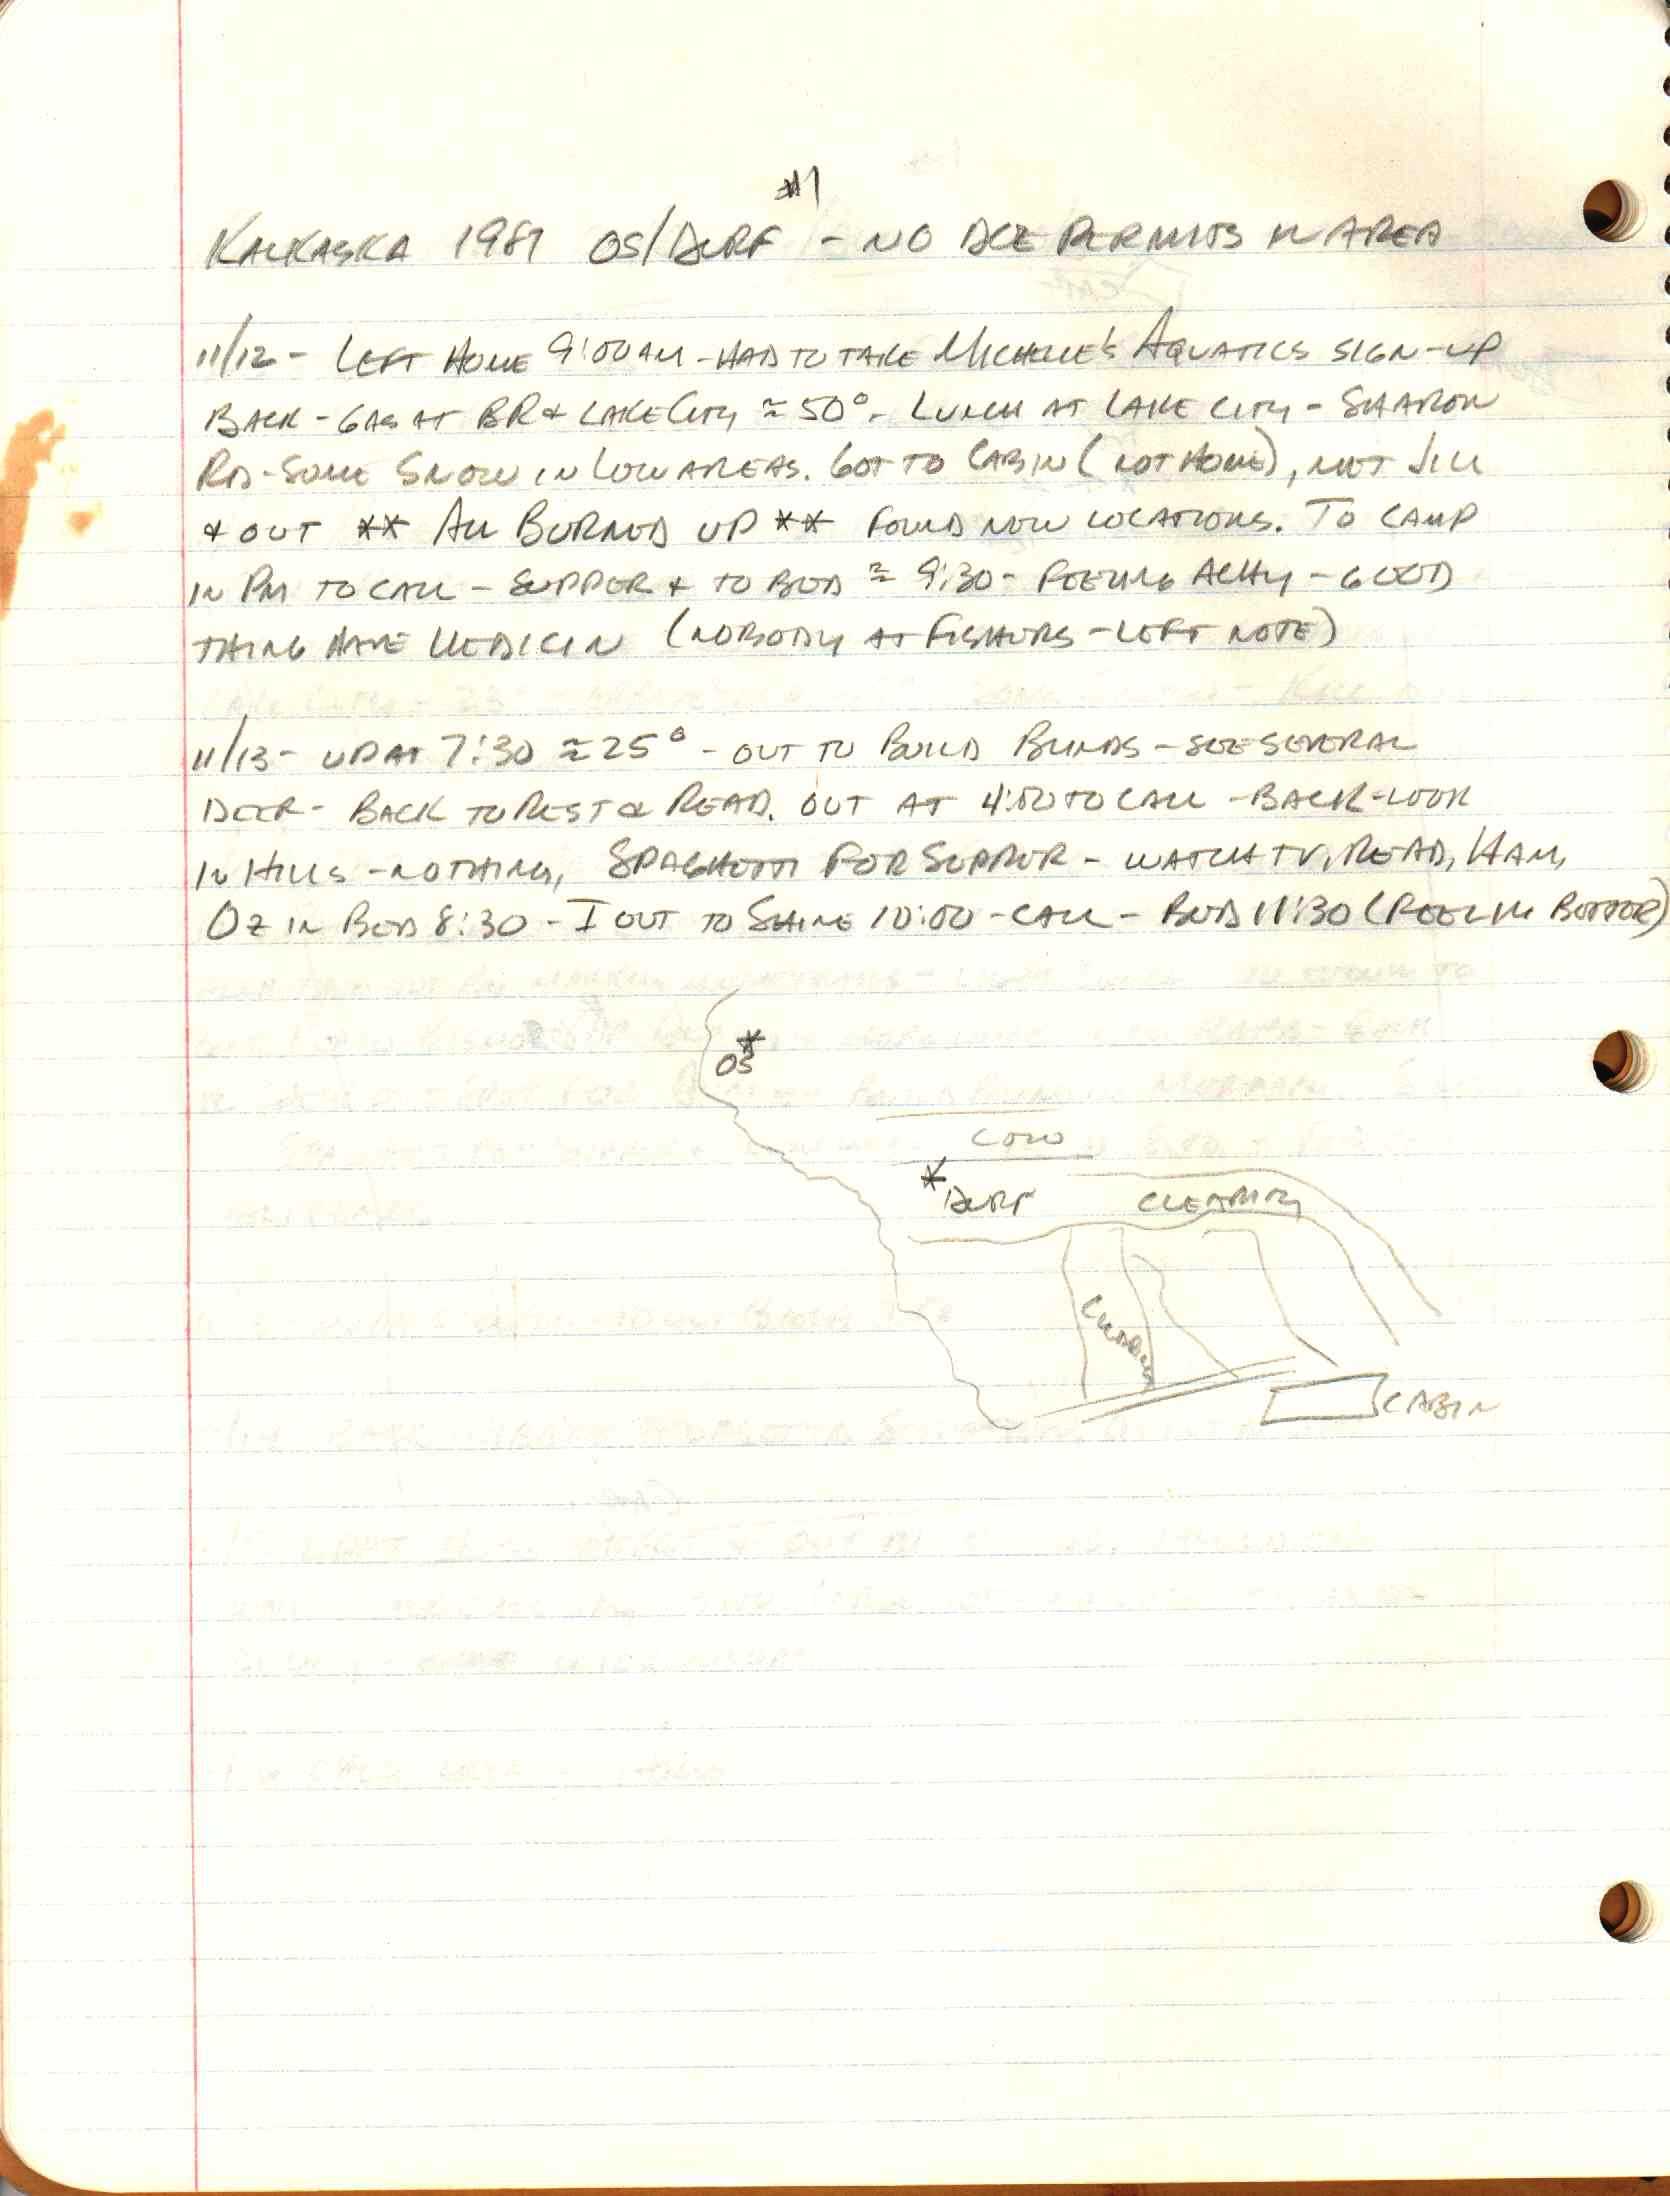 #1
KALKASKA 1981 OS/DURF - NO DOE PERMITS IN AREA
11/12 - LEFT HOME 9:00 AM - HAD TO TAKE MICHELLE'S AQUATICS SIGN-UP
BACK - GAS AT BR & LAKE CITY ≈ 50°. LUNCH AT LAKE CITY - SHARON
RD - SOME SNOW IN LOW AREAS. GOT TO CABIN (NOT HOME), MET JILL
& OUT ** ALL BURNED UP ** FOUND NEW LOCATIONS. TO CAMP
IN PM TO CALL - SUPPER & TO BED ≈ 9:30 - FEELING ACHY - GOOD
THING HAVE MEDICIN (NOBODY AT FISHERS - LEFT NOTE)
11/13 - UP AT 7:30 ≈ 25° - OUT TO BUILD BLINDS - SEE SEVERAL
DEER - BACK TO REST & READ. OUT AT 4:00 TO CALL - BACK - LOOK
IN HILLS - NOTHING, SPAGHETTI FOR SUPPER - WATCH TV, READ, HAM,
OZ IN BED 8:30 - I OUT TO SHINE 10:00 - CALL - BED 11:30 (FEELIN BETTER)
* OS
LOW
* DURF CLEARING
CLEARING
CABIN